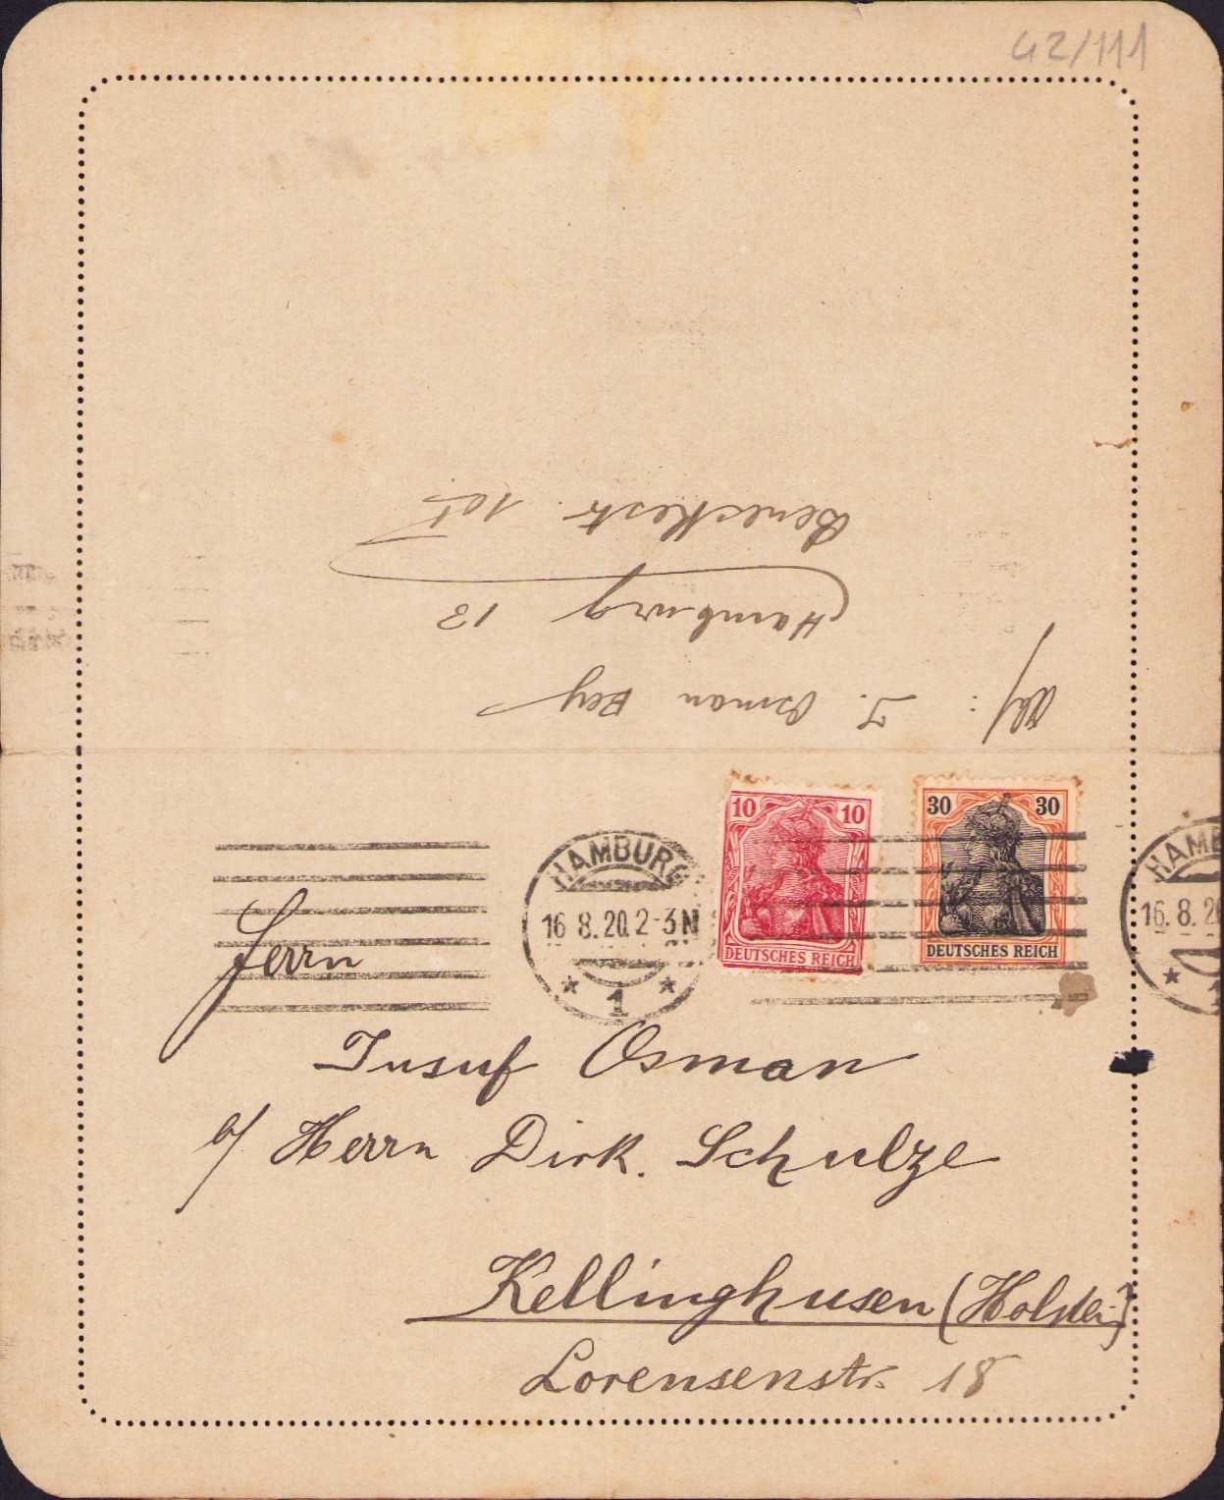 G2/111
Abs: J. Osman Bey
Hamburg 13
Beneckestr. 10
10 10
DEUTSCHES REICH
30 30
DEUTSCHES REICH
HAMBURG
16 8.20. 2-3N
* 1 *
HAMB
16. 8. 2
*
Herrn
Jusuf Osman
b/ Herrn Dirk. Schulze
Kellinghusen (Holstein)
Lorensenstr. 18